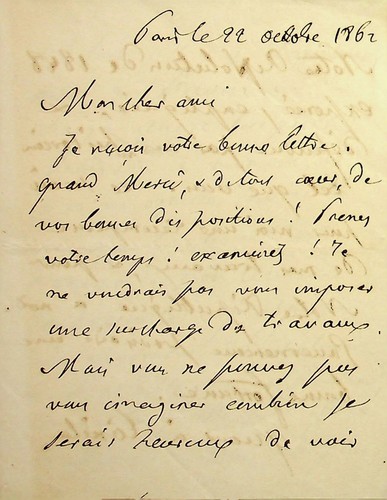 Paris le 22 octobre 1862
Mon cher ami
Je reçois votre bonne lettre.
grand Merci, & de tout cœur, de
vos bonnes dispositions ! Prenez
votre temps ! examinez ! Je
ne voudrais pas vous imposer
une surcharge de travaux.
Mais vous ne pouvez pas
vous imaginer combien je
serais heureux de voir